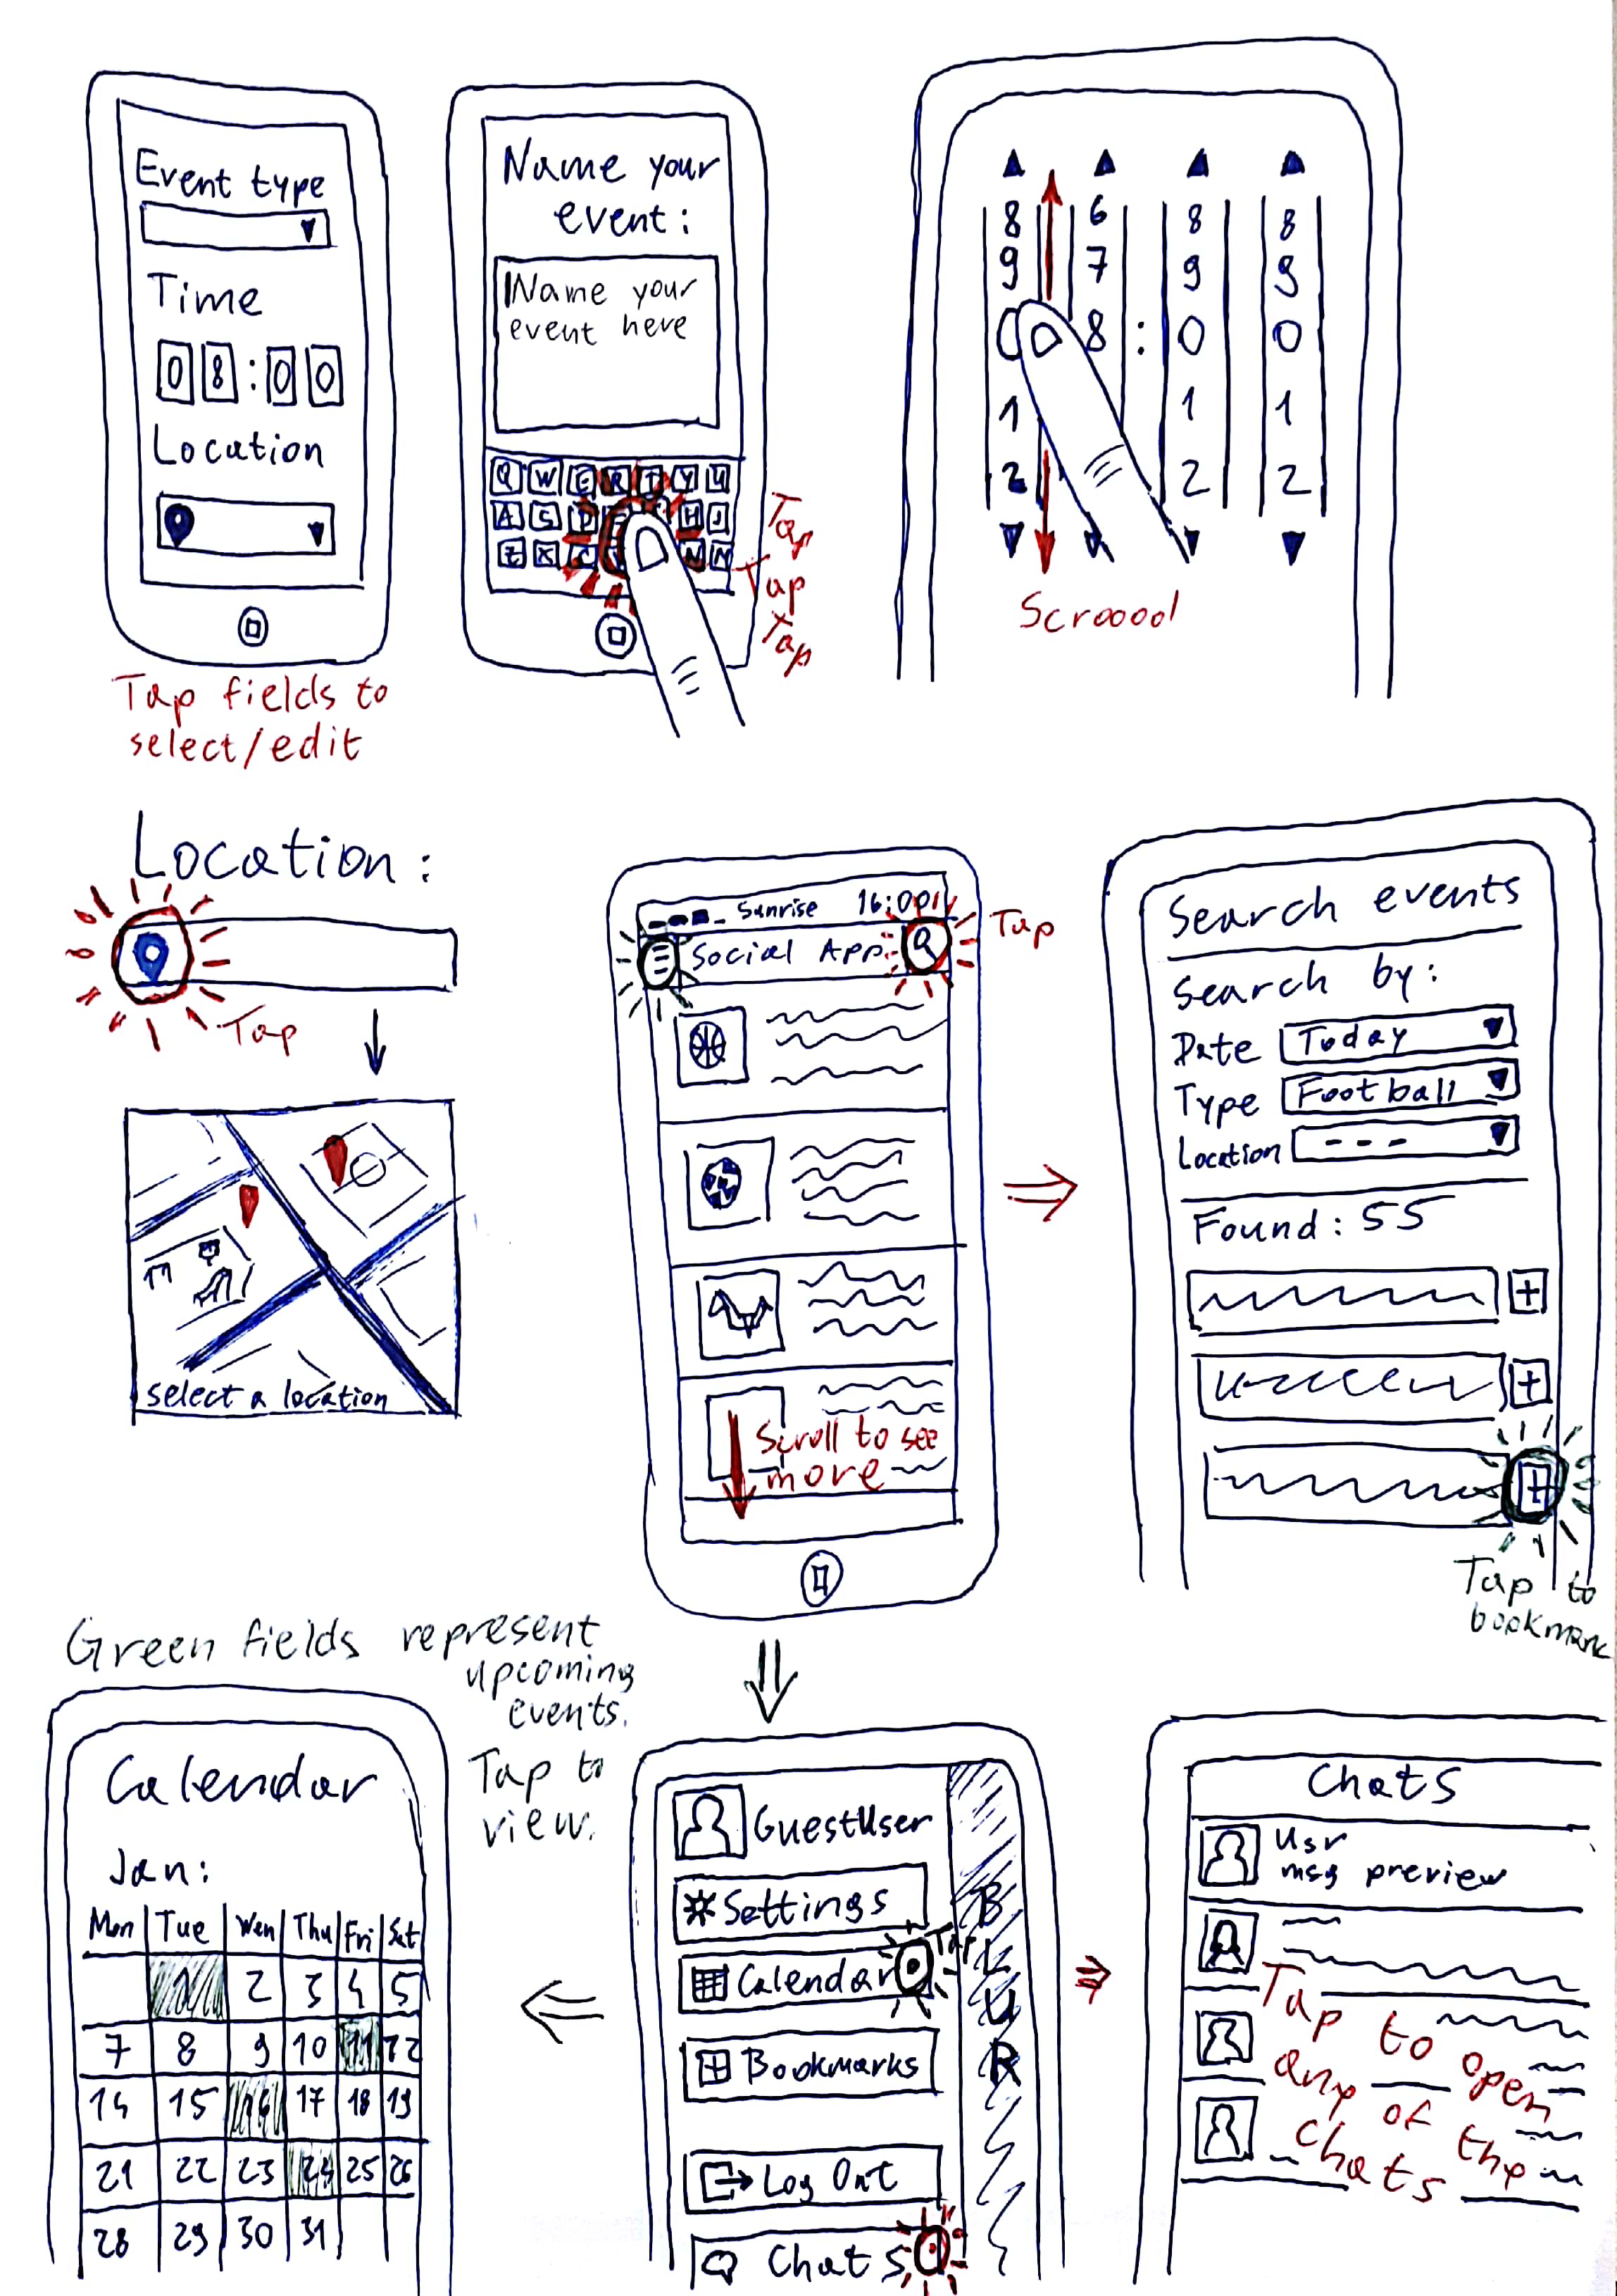 Event type
Time
08:00
Location
Tap fields to
select/edit
Name your
event:
Name your
event here
Q W E R T Y U
A S D H J
Z X N
Tap
Tap
Tap
8 6 8 8
9 7 9 9
0 8 : 0 0
1 1 1
2 2 2
Scroood
Location:
Tap
select a location
Sunrise 16:00
Social App
Tap
Scroll to see
more
Search events
Search by:
Date Today
Type Football
Location ---
Found: 55
Tap to
bookmark
Green fields represent
upcoming
events.
Tap to
view.
Calendar
Jan:
Mon Tue Wen Thu Fri Sat
1 2 3 4 5
7 8 9 10 11 12
14 15 16 17 18 19
21 22 23 24 25 26
28 29 30 31
GuestUser
Settings
Tap
Calendar
Bookmarks
Log Out
Chats
BLUR
Chats
Usr
msg preview
Tap to open
any of the
chats